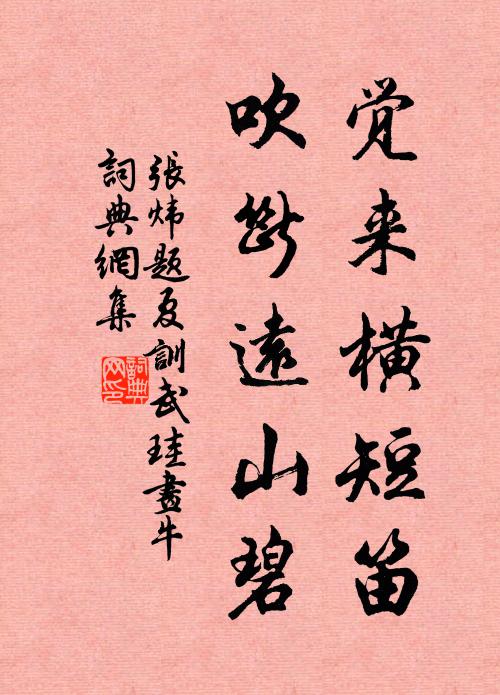 觉来横短笛
吹断遠山碧
張炜題夏訓武珪畫牛
詞典網集
詞典網印